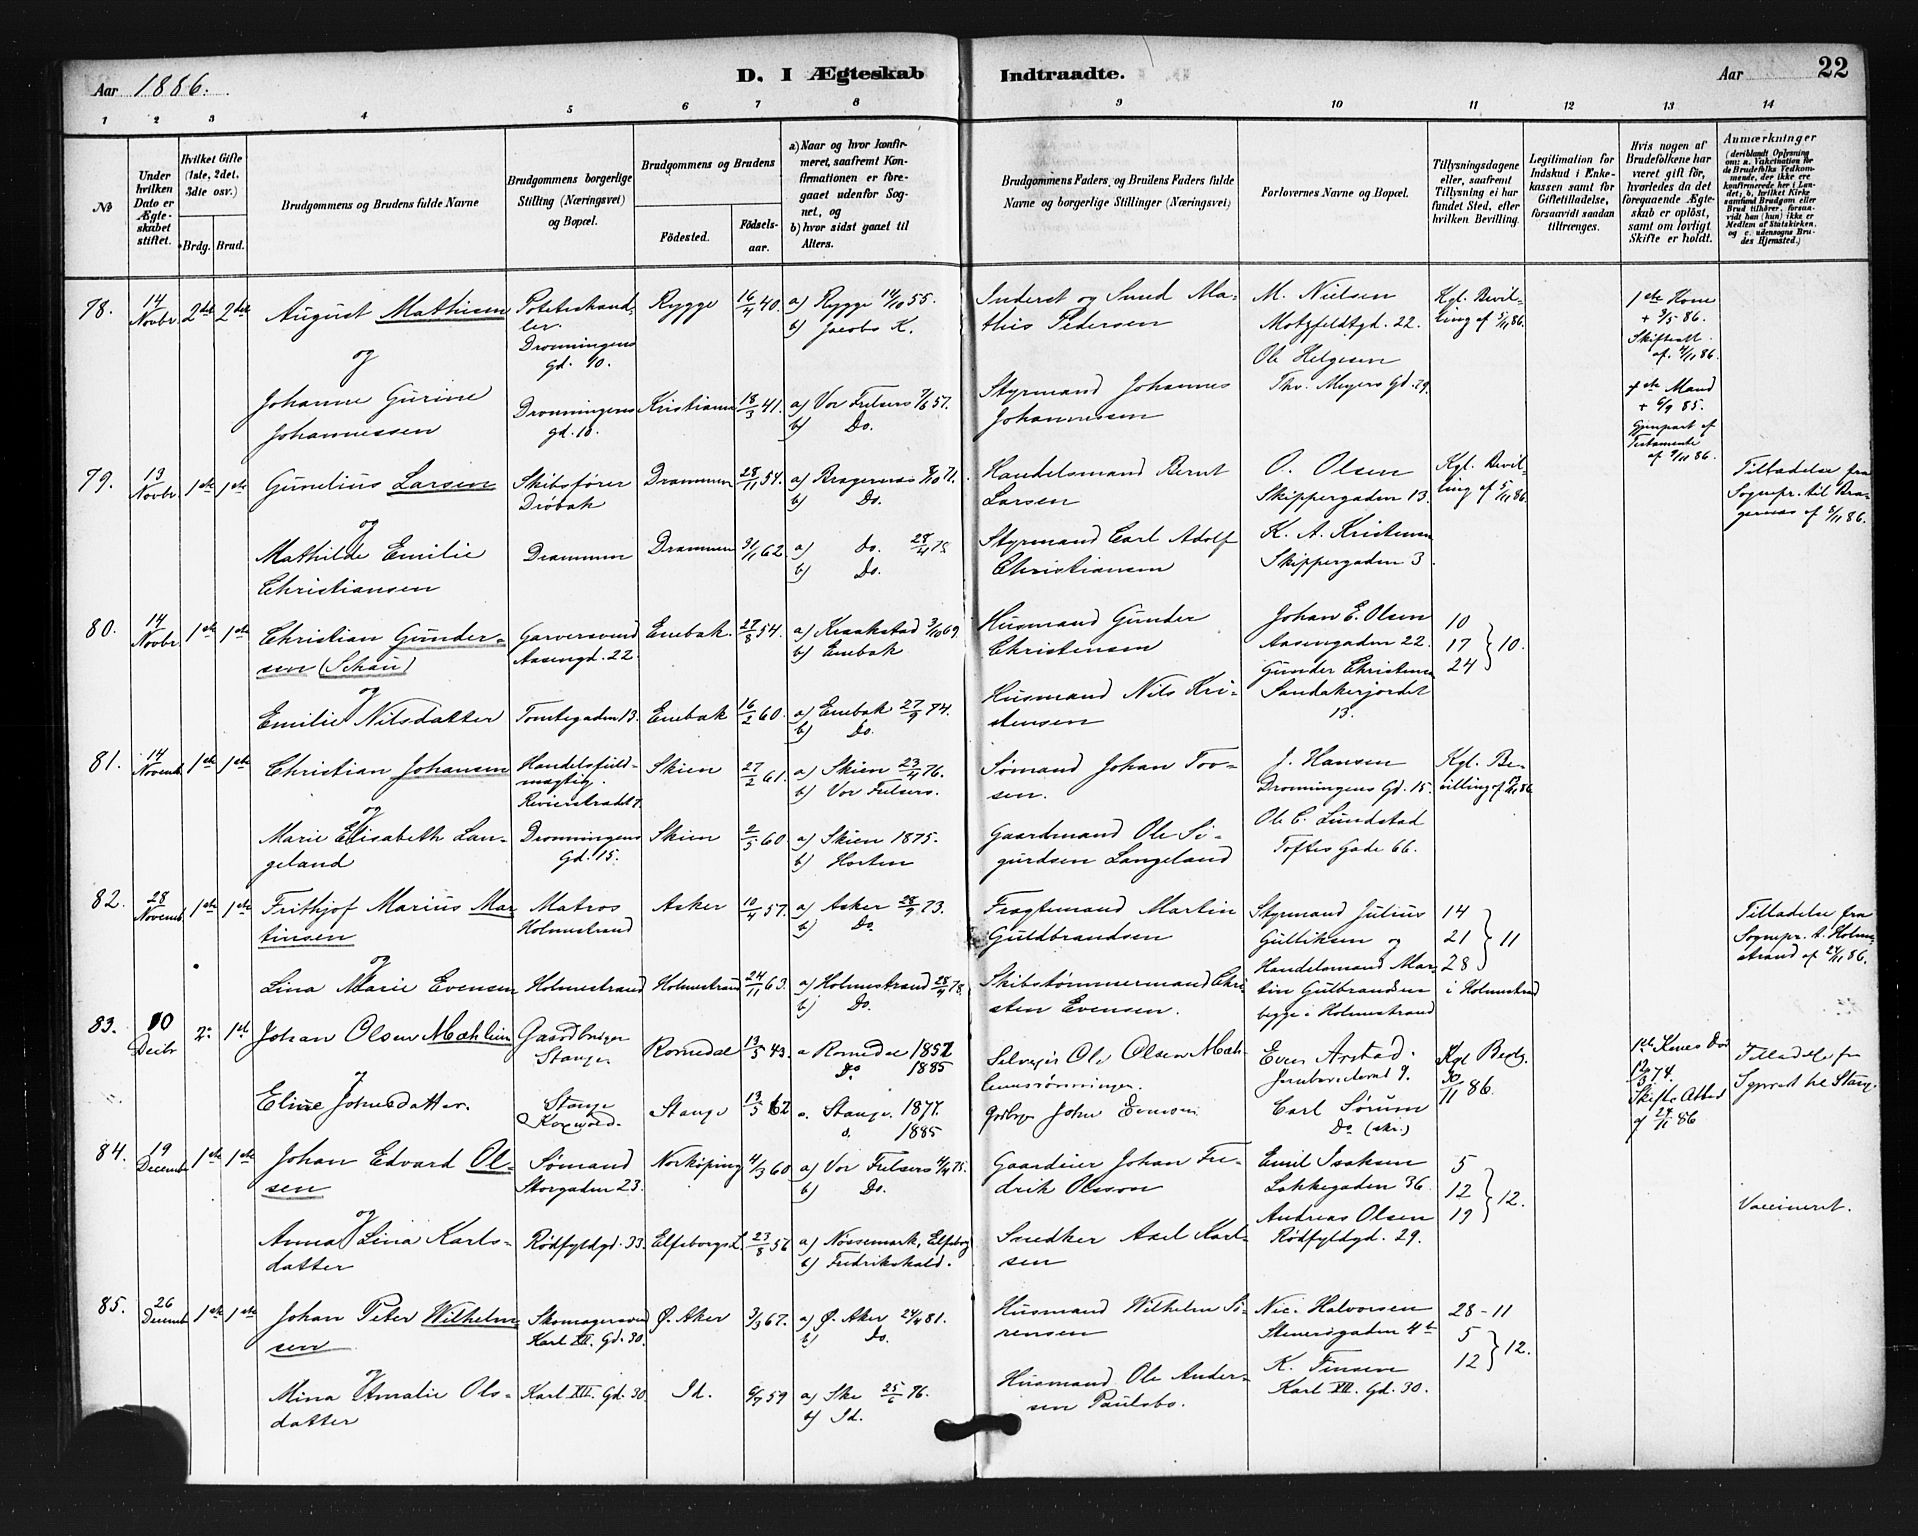 Aar 1886.
D. I Ægteskab Indtraadte.
Aar
22
1 2 3 4 5 6 7 8 9 10 11 12 13 14
No
Under hvilken Dato er Ægteskabet stiftet.
Hvilket Gifte (1ste, 2det, 3die osv.)
Brdg. Brud.
Brudgommens og Brudens fulde Navne
Brudgommens borgerlige Stilling (Næringsvei) og Bopæl.
Brudgommens og Brudens
Födested.
Födselsaar.
a) Naar og hvor konfirmeret, saafremt Konfirmationen er foregaaet udenfor Sognet, og
b) hvor sidst gaaet til Alters.
Brudgommens Faders, og Brudens Faders fulde Navne og borgerlige Stillinger (Næringsvei)
Forlovernes Navne og Bopæl.
Tillysningsdagene eller, saafremt Tillysning ei har fundet Sted, efter hvilken Bevilling.
Legitimation for Indskud i Enkekassen samt for Giftetilladelse, forsaavidt saadan tiltrænges.
Hvis nogen af Brudefolkene har været gift før, hvorledes da det foregaaende Ægteskab er opløst, samt om lovligt Skifte er holdt.
Anmærkninger
(deriblandt Oplysning om: a. Vakcination for de Brudefolks Vedkommende, der ikke ere konfirmerede her i Landet; b. hvilket Kirkesamfund Brudgom eller Brud tilhører, forsaavidt han (hun) ikke er Medlem af Statskirken, og c. udensogns Brudes Hjemsted.)
78. 14 Novbr. 2det 2det August Mathisen
Potetershandler. Dronningens Gd. 10.
Rygge 16/4 40.
a) Rygge 14/10 55.
b) Jacobs K.
Inderst og Smed Mathis Pedersen
M. Nielsen
Motzfeldtgd. 22.
Ole Helgesen
Thv. Meyers Gd. 29.
Kgl. Bevilling af 5/11 86.
1ste Kone
+ 3/5 86.
Skifteatt.
af 4/11 86.
og
Johanne Gurine Johannessen
Dronningens gd. 10.
Kristiania 18/3 41.
a) Vor Frelsers 57.
b) Do.
Styrmand Johannes Johannessen
1ste Mand
+ 6/9 85.
Gjenpart af Testamente
af 86.
79. 13 Novbr. 1ste 1ste Gunelius Larsen
Skibsfører Drøbak
Drammen 28/11 54.
a) Bragernæs 8/10 71.
b) Do.
Handelsmand Bernt Larsen
O. Olsen
Skippergaden 13.
Kgl. Bevilling af 5/11 86.
Tilladelse fra Sognepr. til Bragernæs af 8/11 86.
og
Mathilde Emilie Christiansen
Drammen
Drammen 62.
a) do. 28/4 78
b) Do.
Styrmand Carl Adolf Christiansen
K. A. Kristensen
Skippergaden 3.
80. 14 Novbr. 1ste 1ste Christian Gundersen (Schau)
Garversvend Aasengd. 22.
Enebak 27/8 54.
a) Kraakstad 3/10 69.
b) Enebak
Husmand Gunder Christensen
Johan E. Olsen
Aasengaden 22.
Gunder Christensen
Sandakerjordet 13.
10
17
24
} 10.
og
Emilie Nilsdatter
Tomtegaden 13.
Enebak 16/2 60.
a) Enebak 27/9 74.
b) Do.
Husmand Nils Kristensen
81. 14 Novemb. 1ste 1ste Christian Johansen
Handelsfuldmægtig.
Skien 27/2 61.
a) Skien 23/4 76.
b) Vor Frelsers.
Sømand Johan Torsen.
J. Hansen
Dronningens Gd. 15.
Ole C. Lundstad
Toftes Gade 66.
Kgl. Bevilling af 86.
og
Marie Elisabeth Langeland
Dronningens Gd. 15.
Skien 2/5 60.
a) Skien 1875.
b) Horten
Gaardmand Ole Sigurdsen Langeland
82. 28 Novemb. 1ste 1ste Frithjof Marius Martinsen
Matros Holmestrand
Asker 10/4 57.
a) Asker 28/9 73.
b) Do.
Fragtemand Martin Guldbrandsen
Styrmand Julius Gulliksen og
Handelsmand Martin Gulbrandsen
begge i Holmestrand
14
21
28
} 11
i Holmestrand
Tilladelse fra Sognepr. t. Holmestrand af 24/11 86.
og
Lina Marie Evensen
Holmestrand
Holmestrand 24/11 63.
a) Holmestrand 28/4 78.
b) Do.
Skibstømmermand Christen Evensen.
83. 10 Decbr 2. 1st Johan Olsen Mæhlum
Gaardbruger Stange
Romedal 13/5 43.
a Romedal 1857
Do. 1885
Selveier Ole Olsen
Even Arstad.
9.
Kgl Bevlg.
30/11 86.
1ste Kones Død
12/3 74.
Skifte
af 24/11 86
Tilladelse fra Sgprest til Stange.
og
Eline Johnsdatter.
Stange
Stange 13/5 62
a. Stange. 1877.
d. 1885
John Evensen
Carl Sørum
Do
84. 19 Decemb. 1ste 1ste Johan Edvard Olsen
Sømand Storgaden 23.
Norköping 4/3 60
a) Vor Frelsers 75.
b) Do.
Gaardeier Johan Fredrik Olsson
Emil Isaksen
Lakkegaden 36.
Andreas Olsen
Rødfyldgd. 29.
5
12
19
} 12.
og
Anna Lina Karlsdatter
Rødfyldgd. 33.
Elfsborgs L. 23/8 56
a) Nössemark, Elfsborg
b) Fredrikshald.
Snedker Axel Karlsen
Vaccineret.
85. 26 Decemb. 1ste 1ste Johan Peter Wilhelmsen
Skomagersvend Karl XII. Gd. 30.
Ø. Aker 3/3 67.
a) Ø. Aker 24/4 81.
b) Do.
Husmand Wilhelm Sörensen
Nic. Halvorsen
Stenersgaden 4b
K. Finsen
Karl XII. Gd. 30.
28-11
5
12
} 12.
og
Mina Amalie Olsdatter
Karl XII. Gd. 30.
Id. 59
a) Ske 25/6 76.
b) Id.
Husmand Ole Andersen Paulsbo.